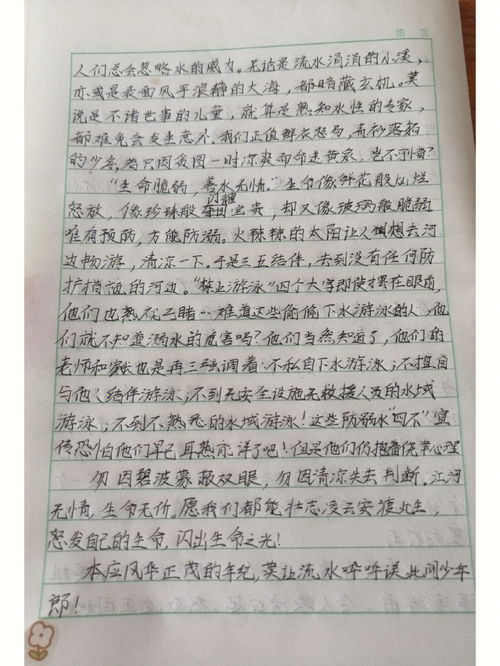 第 页
人们总会忽略水的威力。无论是流水涓涓的小溪，
亦或是表面风平浪静的大海，都暗藏玄机。莫
说是不谙世事的儿童，就算是熟知水性的专家，
都难免会发生意外。我们正值鲜衣怒马、青衫落拓
的少年，若只因贪图一时凉爽而命走黄泉，岂不可惜？
"生命脆弱，善水无情。"生命像鲜花般灿烂
怒放，像珍珠般闪耀宝贵，却又像玻璃般脆弱
唯有预防，方能防溺。火辣辣的太阳让人想去河
边畅游，清凉一下。于是三五结伴，去到没有任何防
护措施的河边。"禁止游泳"四个大字即使摆在眼前，
他们也熟视无睹…难道这些偷偷下水游泳的人，他
们就不知道溺水的危害吗？他们当然知道了，他们的
老师和家长也是再三强调着：不私自下水游泳；不擅自
与他人结伴游泳；不到无安全设施无救援人员的水域
游泳；不到不熟悉的水域游泳！这些防溺水"四不"宣
传恐怕他们早已耳熟亦详了吧！但是他们仍抱着侥幸心理
勿因碧波蒙蔽双眼，勿因清凉失去判断。江河
无情，生命无价。愿我们都能壮志凌云安渡此生，
怒发自己的生命，闪出生命之光！
本应风华正茂的年纪，莫让流水哗哗误此间少年
郎！